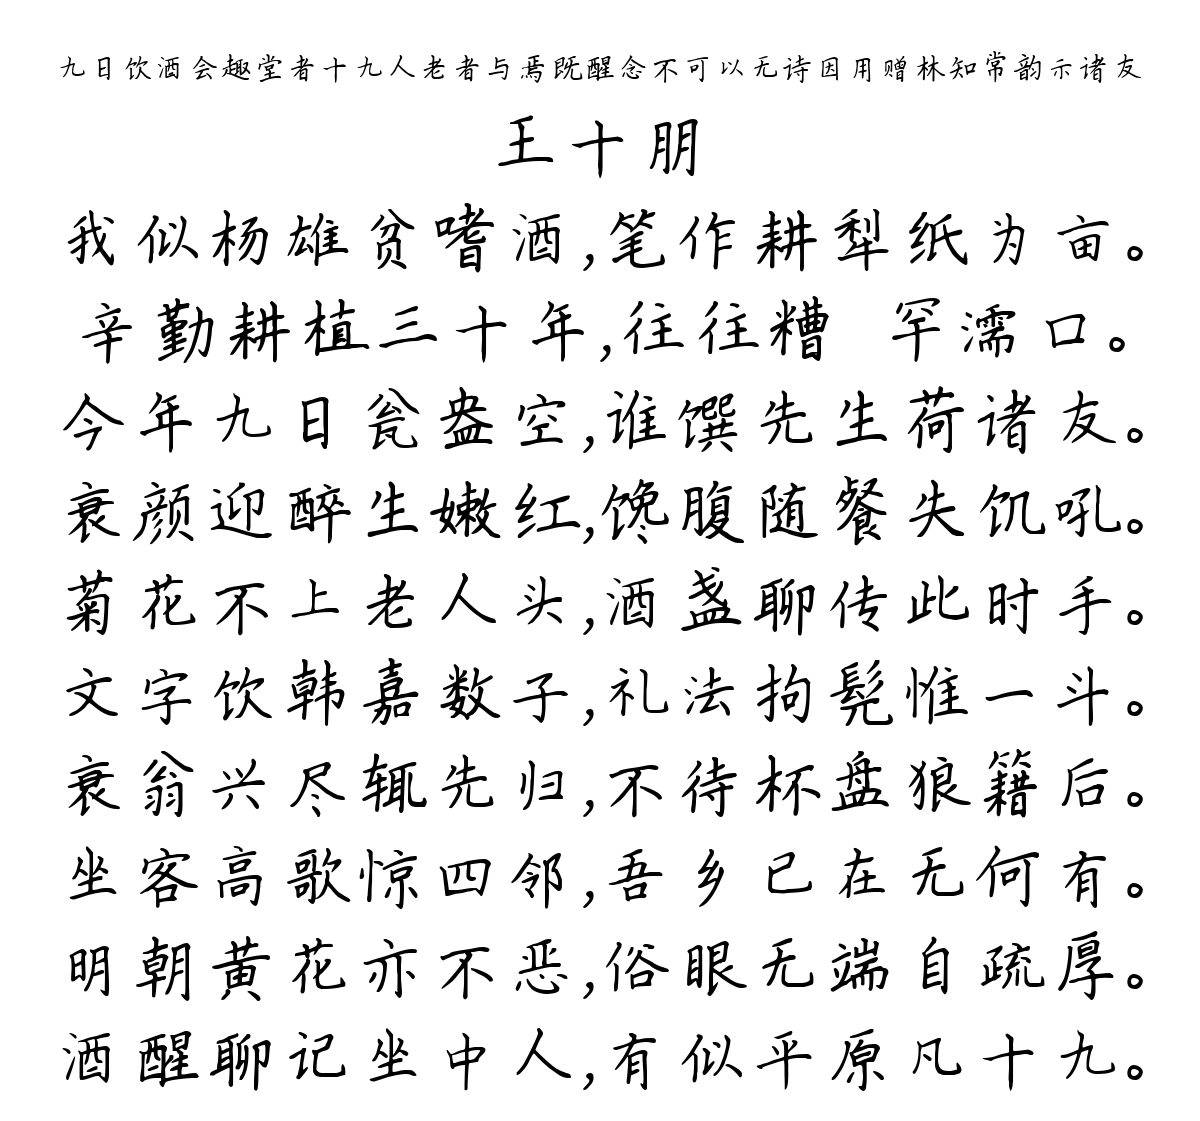 九日饮酒会趣堂者十九人老者与焉既醒念不可以无诗因用赠林知常韵示诸友
王十朋
我似杨雄贫嗜酒,笔作耕犁纸为亩。
辛勤耕植三十年,往往糟 罕濡口。
今年九日瓮盎空,谁馔先生荷诸友。
衰颜迎醉生嫩红,馋腹随餐失饥吼。
菊花不上老人头,酒盏聊传此时手。
文字饮韩嘉数子,礼法拘髡惟一斗。
衰翁兴尽辄先归,不待杯盘狼籍后。
坐客高歌惊四邻,吾乡已在无何有。
明朝黄花亦不恶,俗眼无端自疏厚。
酒醒聊记坐中人,有似平原凡十九。